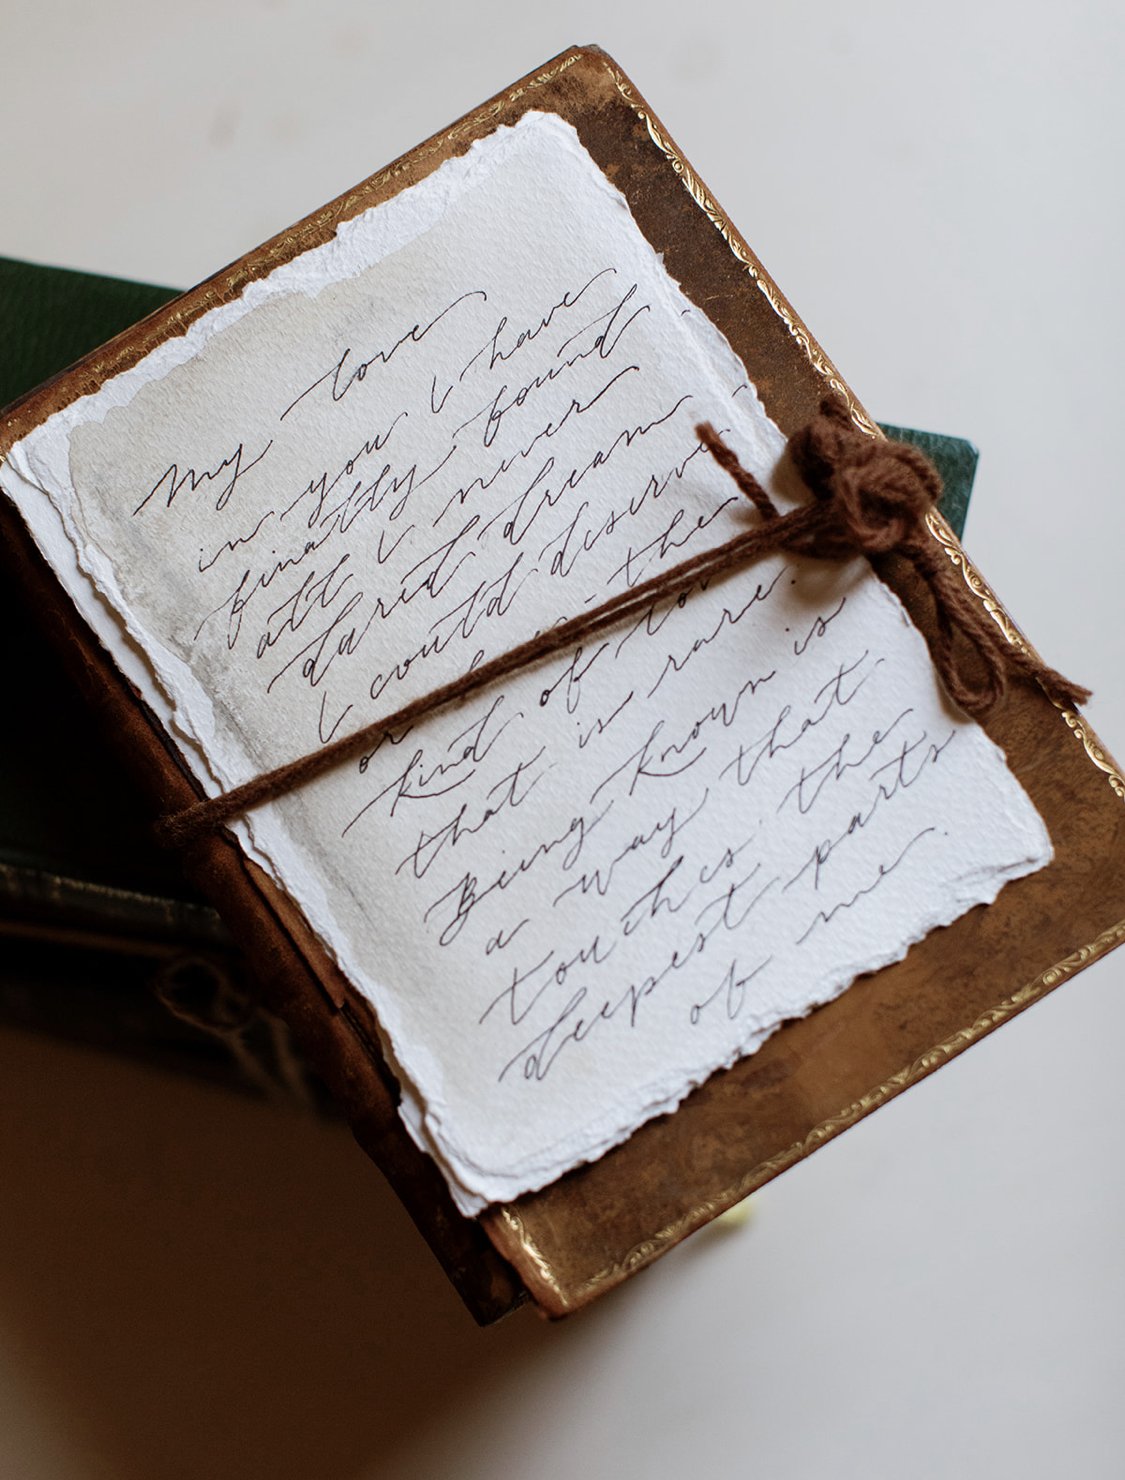 My love
in you I have
finally found
all I never
dared dream
I could deserve
or the
kind of
that is rare.
Being known is
a way that
touches the
deepest parts
of me.